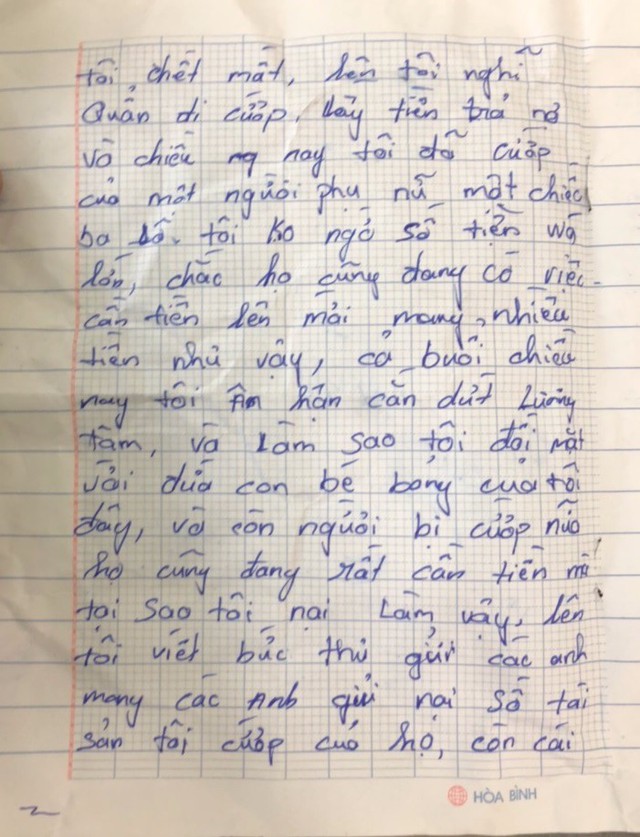 tôi chết mất, lên tôi nghĩ
Quẩn đi cướp, lấy tiền trả nợ
và chiều ng nay tôi đã cướp
của một người phụ nữ một chiếc
ba lô. tôi ko ngờ số tiền wá
lớn, chắc họ cũng đang có việc
cần tiền lên mới mang nhiều
tiền như vậy, cả buổi chiều
nay tôi Ân hận cắn dứt Lương
tâm, và Làm sao tôi đối mặt
với đứa con bé bỏng của tôi
đây, và còn người bị cướp nữa
họ cũng đang rất cần tiền mà
tại sao tôi nại Làm vậy, lên
tôi viết bức thư gửi các anh
mong các Anh gửi nại số tài
sản tôi cướp của họ, còn cái
HÒA BÌNH